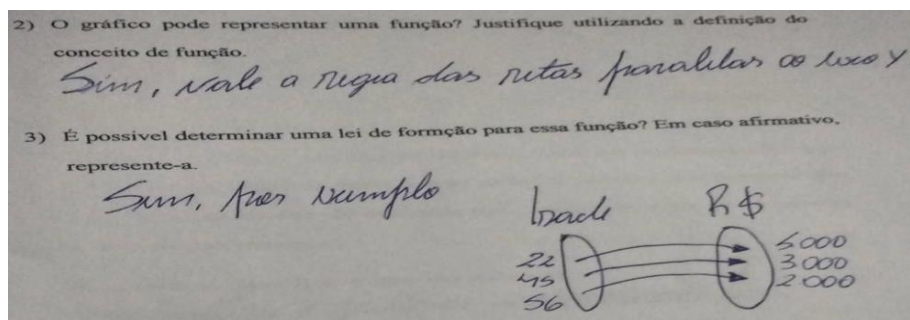 2) O gráfico pode representar uma função? Justifique utilizando a definição do
conceito de função.
Sim, vale a regra das retas paralelas ao eixo y
3) É possível determinar uma lei de formção para essa função? Em caso afirmativo,
represente-a.
Sim, por exemplo
Idade R$
22 5000
45 3000
56 2000